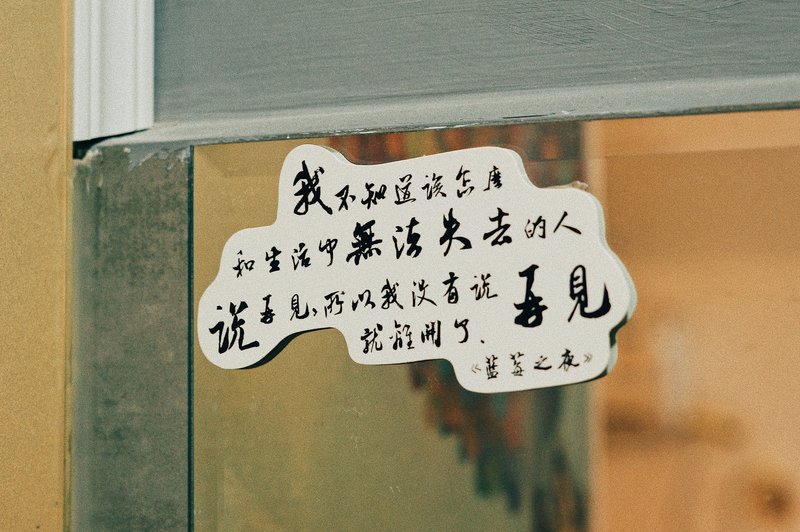 我不知道该怎麽
和生活中無法失去的人
说再見,所以我没有说再見
就離開了、
《蓝莓之夜》